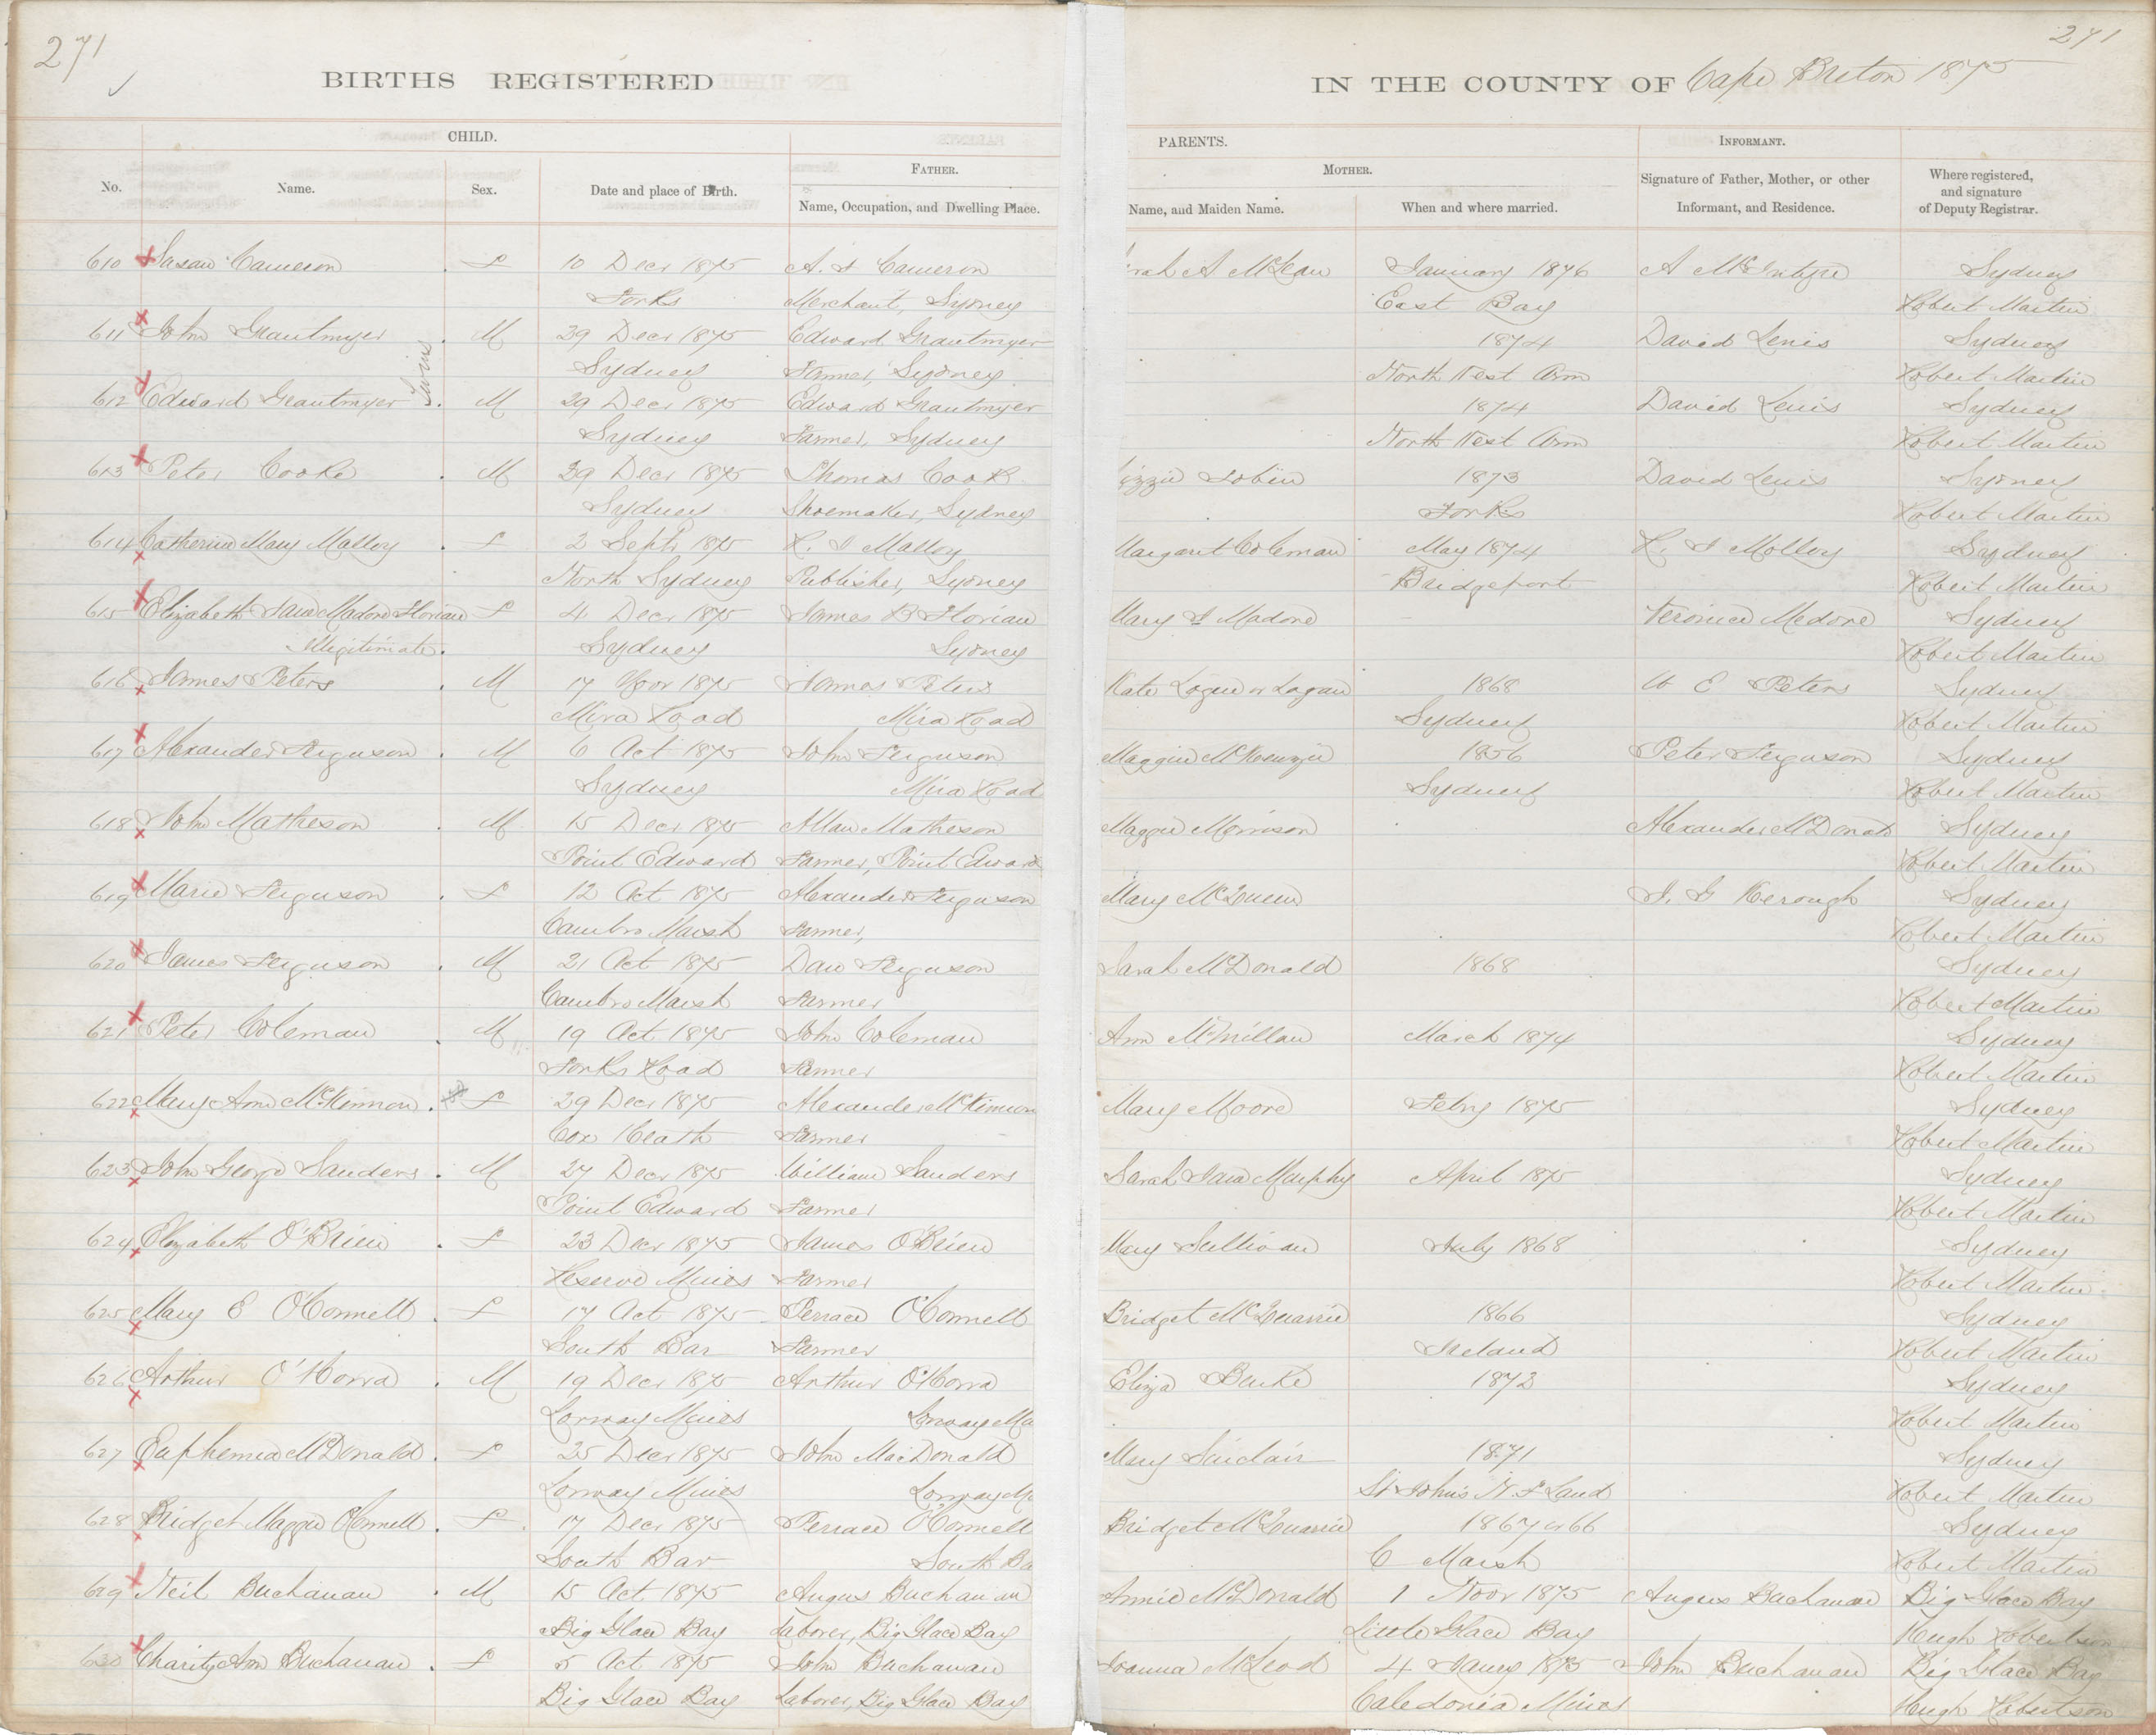 271
271
BIRTHS REGISTERED IN THE COUNTY OF Cape Breton 1875
CHILD. PARENTS. INFORMANT.
FATHER. MOTHER.
No. Name. Sex. Date and place of Birth. Name, Occupation, and Dwelling Place. Name, and Maiden Name. When and where married. Signature of Father, Mother, or other Informant, and Residence. Where registered, and signature of Deputy Registrar.
610 Susan Cameron F 10 Decr 1875 A. J Cameron rah A McLean January 1876 A McIntyre Sydney
Forks Merchant, Sydney East Bay Robert Martin
611 John Grantmyer M 29 Decr 1875 Edward Grantmyer 1874 David Lewis Sydney
Twins
Sydney Farmer, Sydney North West Arm Robert Martin
612 Edward Grantmyer M 29 Decr 1875 Edward Grantmyer 1874 David Lewis Sydney
Sydney Farmer, Sydney North West Arm Robert Martin
613 Peter Cooke M 29 Decr 1875 Thomas Cook izzie Tobin 1873 David Lewis Sydney
Sydney Shoemaker, Sydney Forks Robert Martin
614 Catherine Mary Malloy F 2 Septr 1875 R. J Malloy Margaret Coleman May 1874 R. J Molloy Sydney
North Sydney Publisher, Sydney Bridgeport Robert Martin
615 Elizabeth Jane Madore Florian F 4 Decr 1875 James B Florian Mary J Madore Veronica Medore Sydney
Illegitimate. Sydney Sydney Robert Martin
616 James Peters M 17 Novr 1875 James Peters Kate Logue or Logan 1868 W E Peters Sydney
Mira Road Mira Road Sydney Robert Martin
617 Alexander Ferguson M 6 Oct 1875 John Ferguson Maggie McKenzie 1856 Peter Ferguson Sydney
Sydney Mira Road Sydney Robert Martin
618 John Matheson M 15 Decr 1875 Allan Matheson Maggie Morrison Alexander McDonald Sydney
Point Edward Farmer, Point Edward Robert Martin
619 Marie Ferguson F 12 Oct 1875 Alexander Ferguson Mary McQueen J. G Kerough Sydney
Cambro Marsh Farmer, Robert Martin
620 James Ferguson M 21 Oct 1875 Dan Ferguson Sarah McDonald 1868 Sydney
Cambro Marsh Farmer Robert Martin
621 Peter Coleman M 19 Oct 1875 John Coleman Ann McMillan March 1874 Sydney
Forks Road Farmer Robert Martin
622 Mary Ann McKinnon F 29 Decr 1875 Alexander McKinnon Mary Moore Febry 1875 Sydney
Cox Heath Farmer Robert Martin
623 John George Sanders M 27 Decr 1875 William Sanders Sarah Jane Murphy April 1875 Sydney
Point Edward Farmer Robert Martin
624 Elizabeth O'Brien F 23 Decr 1875 James O'Brien Mary Sullivan July 1868 Sydney
Reserve Mines Farmer Robert Martin
625 Mary E O'Connell F 17 Oct 1875 Terrace O'Connell Bridget McQuarrie 1866 Sydney
South Bar Farmer Ireland Robert Martin
626 Arthur O'Horra M 19 Decr 1875 Arthur O'Horra Eliza Burke 1872 Sydney
Lorway Mines Lorway Mi Robert Martin
627 Euphemia McDonald F 25 Decr 1875 John MacDonald Mary Sinclair 1871 Sydney
Lorway Mines Lorway Mi St John's N. F Land Robert Martin
628 Bridget Maggie O'Connell F 17 Decr 1875 Terrace O'Connell Bridget McQuarrie 1867 or 66 Sydney
South Bar South Ba C Marsh Robert Martin
629 Neil Buchanan M 15 Oct 1875 Angus Buchanan Annie McDonald 1 Novr 1875 Angus Buchanan Big Glace Bay
Big Glace Bay Laborer, Big Glace Bay Little Glace Bay Hugh Robertson
630 Charity Ann Buchanan F 5 Oct 1875 John Buchanan Joanna McLeod 4 Jany 1875 John Buchanan Big Glace Bay
Big Glace Bay Laborer, Big Glace Bay Caledonia Mines Hugh Robertson